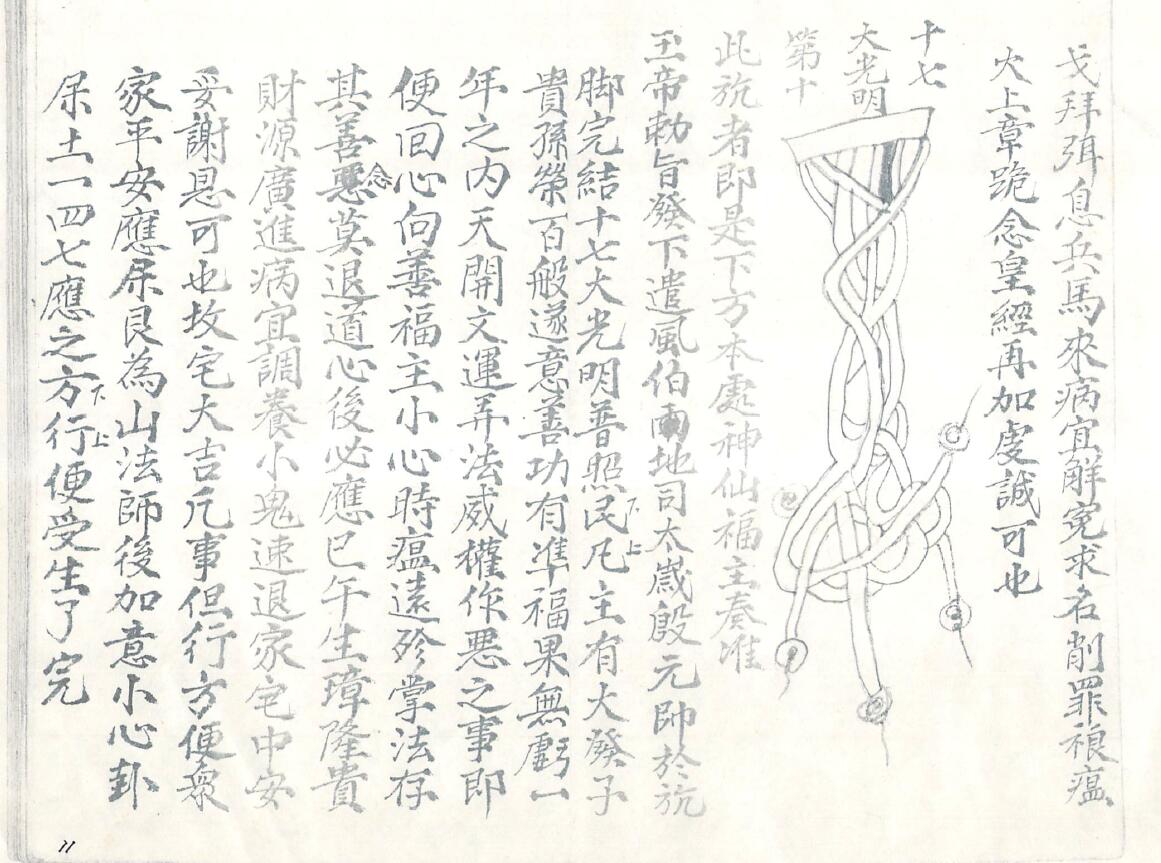 戈拜弭息兵馬來病宜解冤求名削罪根瘟
火上章跪念皇經再加虔誠可也
十七
大光明
第十
此旒者即是下方本處神仙福主奏准
玉帝勅旨發下遣風伯雨地司太歲殷元帥於旒
脚完結十七大光明普照民下凡上主有大發子
貴孫榮百般遂意善功有準福果無虧一
年之內天開文運弄法威權作惡之事即
便回心向善福主小心時瘟遠殄掌法存
其善惡念莫退道心後必應巳午生璋隆貴
財源廣進病宜調養小鬼速退家宅中安
妥謝恩可也坟宅大吉凡事但行方便眾
家平安應屎艮為山法師後加意小心卦
屎土一四七應之方下行上便受生了完
11